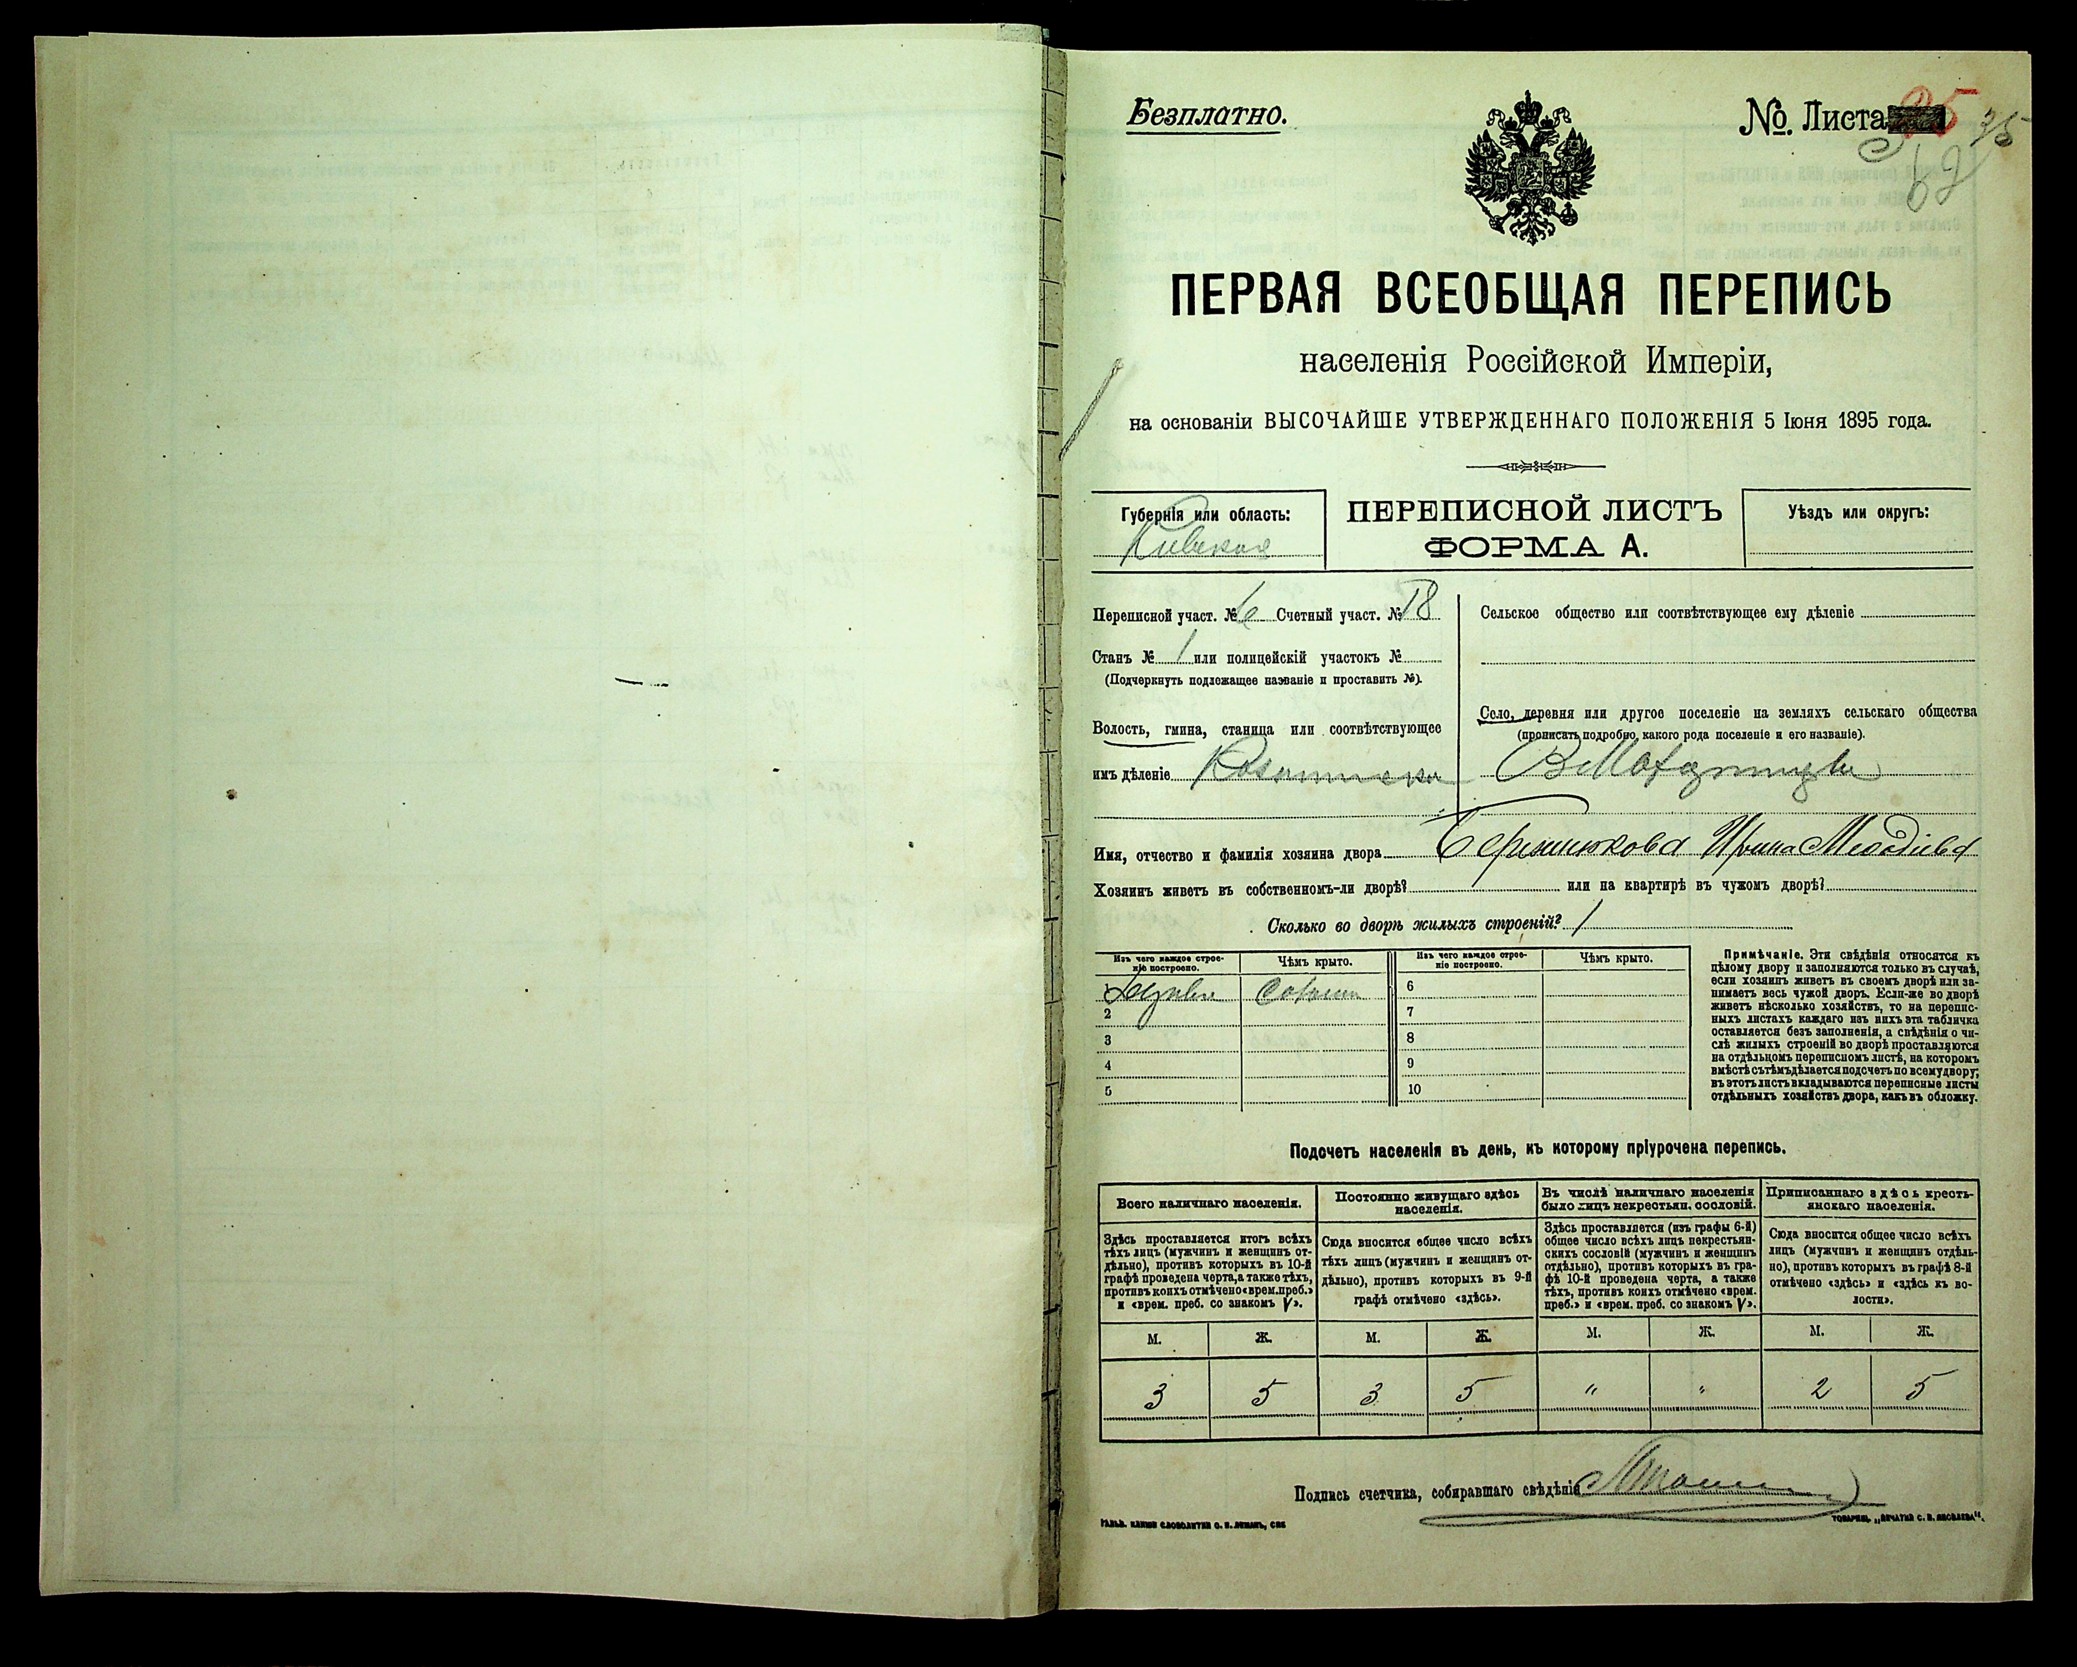 Безплатно.
№. Листа 35 75
62
ПЕРВАЯ ВСЕОБЩАЯ ПЕРЕПИСЬ
населенія Россійской Имперіи,
на основаніи ВЫСОЧАЙШЕ УТВЕРЖДЕННАГО ПОЛОЖЕНІЯ 5 Іюня 1895 года.
Губернія или область:
Кіевская
ПЕРЕПИСНОЙ ЛИСТЪ
ФОРМА А.
Уѣздъ или округъ:
Переписной участ. № 6 Счетный участ. № 18
Станъ № 1 или полицейскій участокъ №
(Подчеркнуть подлежащее названіе и проставить №).
Волость, гмина, станица или соотвѣтствующее
имъ дѣленіе
Сельское общество или соотвѣтствующее ему дѣленіе
Село, деревня или другое поселеніе на земляхъ сельскаго общества
(прописать подробно, какого рода поселеніе и его названіе).
Имя, отчество и фамилія хозяина двора Ирина Меѳодіева
Хозяинъ живетъ въ собственномъ-ли дворѣ? или на квартирѣ въ чужомъ дворѣ?
Сколько во дворѣ жилыхъ строеній? 1
Изъ чего каждое строе-
ніе построено.
Чѣмъ крыто.
Изъ чего каждое строе-
ніе построено.
Чѣмъ крыто.
6
2 7
3 8
4 9
5 10
Примѣчаніе. Эти свѣдѣнія относятся къ
цѣлому двору и заполняются только въ случаѣ,
если хозяинъ живетъ въ своемъ дворѣ или за-
нимаетъ весь чужой дворъ. Если-же во дворѣ
живетъ нѣсколько хозяйствъ, то на перепис-
ныхъ листахъ каждаго изъ нихъ эта табличка
оставляется безъ заполненія, а свѣдѣнія о чи-
слѣ жилыхъ строеній во дворѣ проставляются
на отдѣльномъ переписномъ листѣ, на которомъ
вмѣстѣ съ тѣмъ дѣлается подсчетъ по всему двору;
въ этотъ листъ вкладываются переписные листы
отдѣльныхъ хозяйствъ двора, какъ въ обложку.
Подсчетъ населенія въ день, къ которому пріурочена перепись.
Всего наличнаго населенія.
Здѣсь проставляется итогъ всѣхъ
тѣхъ лицъ (мужчинъ и женщинъ от-
дѣльно), противъ которыхъ въ 10-й
графѣ проведена черта, а также тѣхъ,
противъ коихъ отмѣчено «врем. преб.»
и «врем. преб. со знакомъ V».
Постоянно живущаго здѣсь
населенія.
Сюда вносится общее число всѣхъ
тѣхъ лицъ (мужчинъ и женщинъ от-
дѣльно), противъ которыхъ въ 9-й
графѣ отмѣчено «здѣсь».
Въ числѣ наличнаго населенія
было лицъ некрестьян. сословій.
Здѣсь проставляется (изъ графы 6-й)
общее число всѣхъ лицъ некрестьян-
скихъ сословій (мужчинъ и женщинъ
отдѣльно), противъ которыхъ въ гра-
фѣ 10-й проведена черта, а также
тѣхъ, противъ коихъ отмѣчено «врем.
преб.» и «врем. преб. со знакомъ V».
Приписаннаго здѣсь кресть-
янскаго населенія.
Сюда вносится общее число всѣхъ
лицъ (мужчинъ и женщинъ отдѣль-
но), противъ которыхъ въ графѣ 8-й
отмѣчено «здѣсь» и «здѣсь къ во-
лости».
М. Ж. М. Ж. М. Ж. М. Ж.
3 5 3 5 " " 2 5
Подпись счетчика, собиравшаго свѣдѣнія
ГАЛЬВ. КЛИШЕ СЛОВОЛИТНИ О. И. ЛЕМАНЪ, СПБ
ТОВАРИЩ. „ПЕЧАТНЯ С. П. ЯКОВЛЕВА".